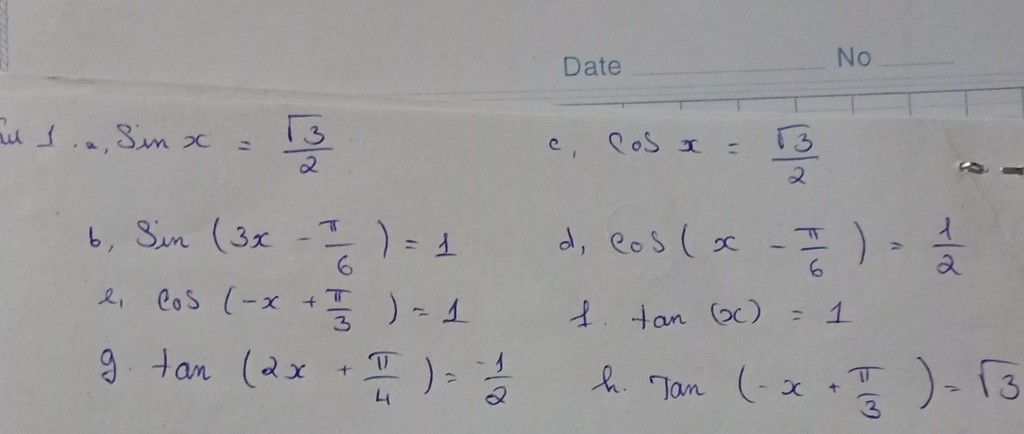 Date No
1. a, Sin x = √3/2 c, cos x = √3/2
b, Sin (3x - π/6) = 1 d, cos (x - π/6) = 1/2
e, cos (-x + π/3) = 1 f. tan (x) = 1
g. tan (2x + π/4) = -1/2 h. Tan (-x + π/3) = √3